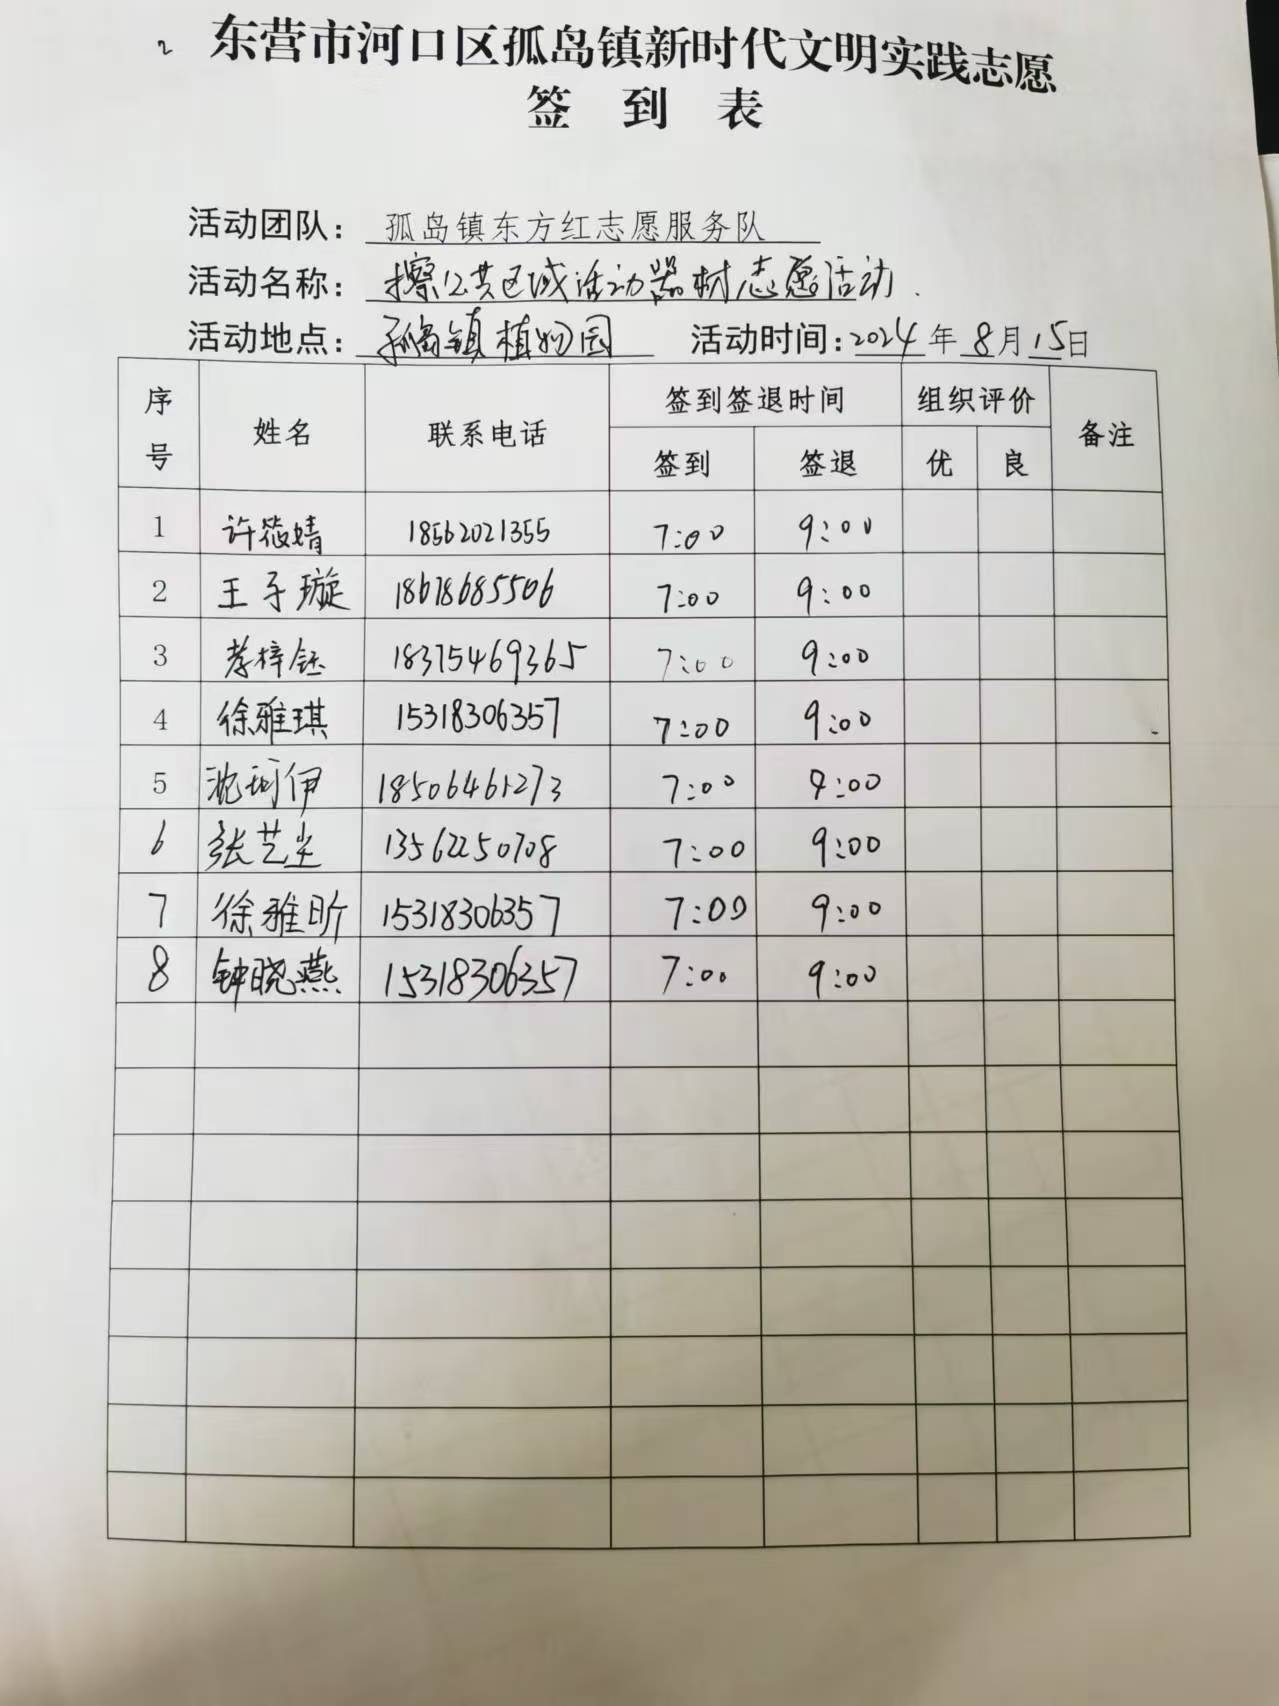 2
东营市河口区孤岛镇新时代文明实践志愿
签 到 表
活动团队：孤岛镇东方红志愿服务队
活动名称：擦公共区域活动器材志愿活动.
活动地点：孤岛镇植物园 活动时间：2024年8月15日
序号 姓名 联系电话 签到签退时间 组织评价 备注
签到 签退 优 良
1 许筱婧 18562021355 7:00 9:00
2 王子璇 18678685506 7:00 9:00
3 梓钰 18375469365 7:00 9:00
4 徐雅琪 15318306357 7:00 9:00
5 沈珂伊 18506461273 7:00 9:00
6 张艺 13562250708 7:00 9:00
7 徐雅昕 15318306357 7:00 9:00
8 钟晓燕 15318306357 7:00 9:00